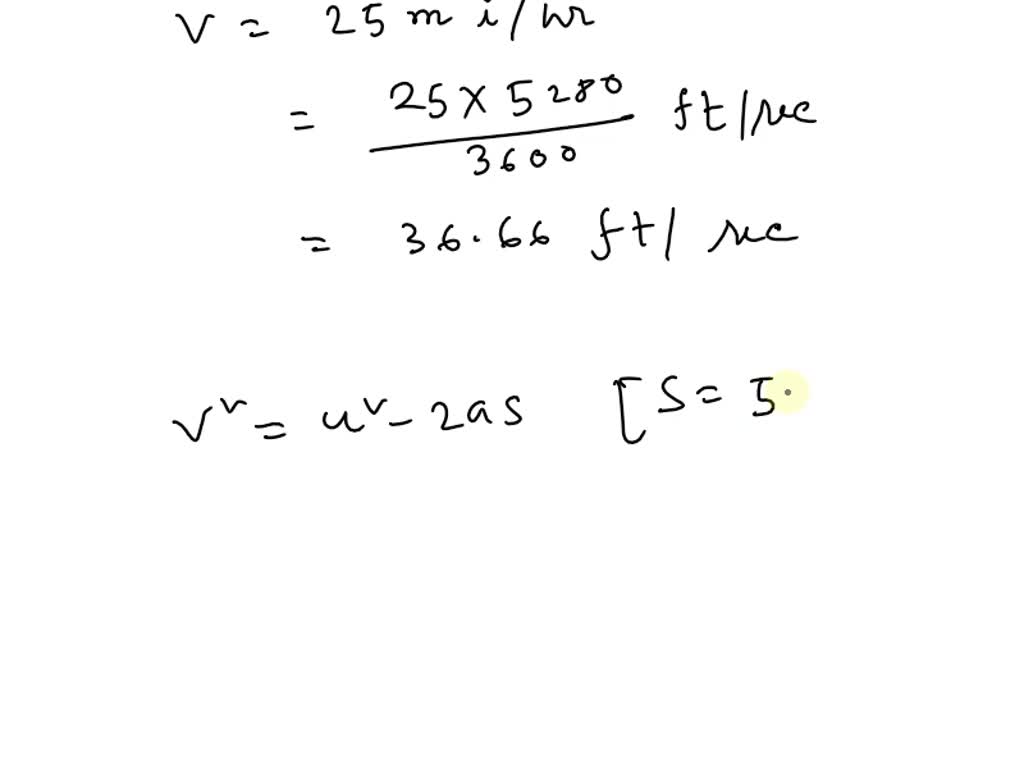 V = 25 mi/hr
= 25 × 5280 / 3600 ft/sec
= 36.66 ft/sec
v² = u² - 2as [S = 5